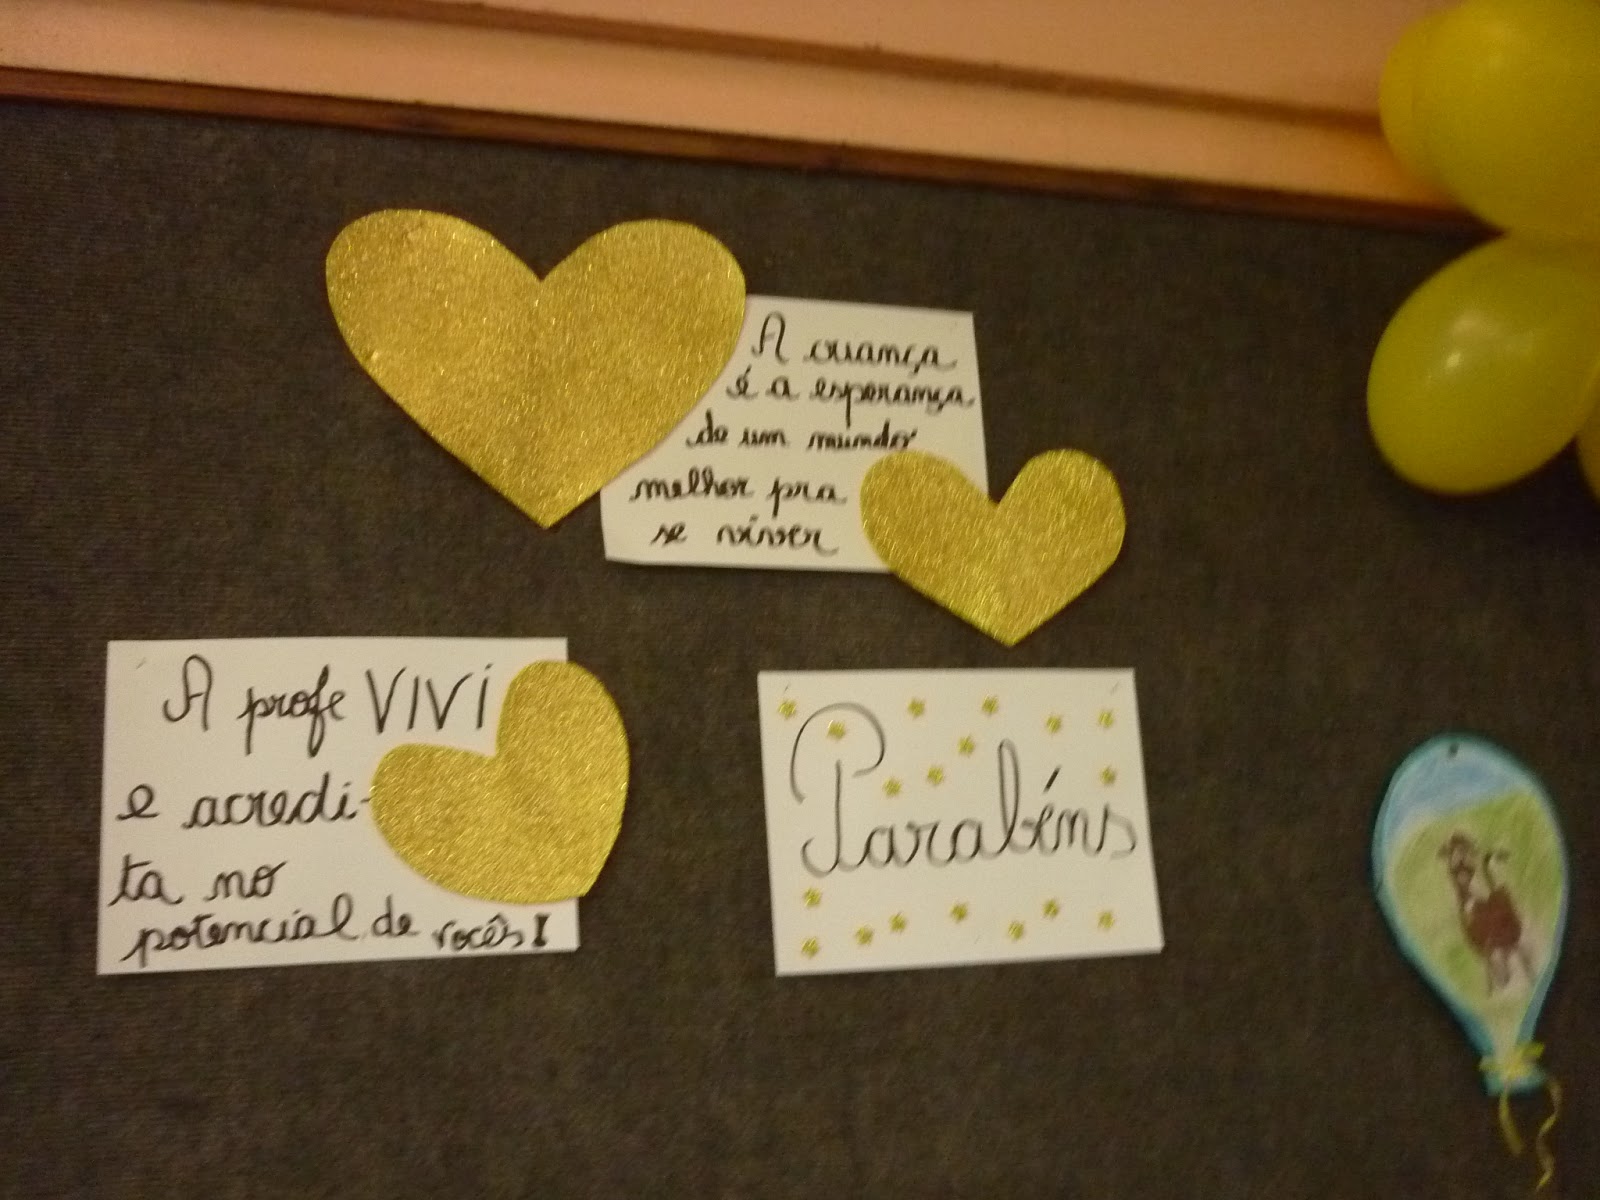 A criança
é a esperança
de um mundo
melhor pra
se viver
A profe VIVI
e acredi-
ta no
potencial de vocês!
Parabéns